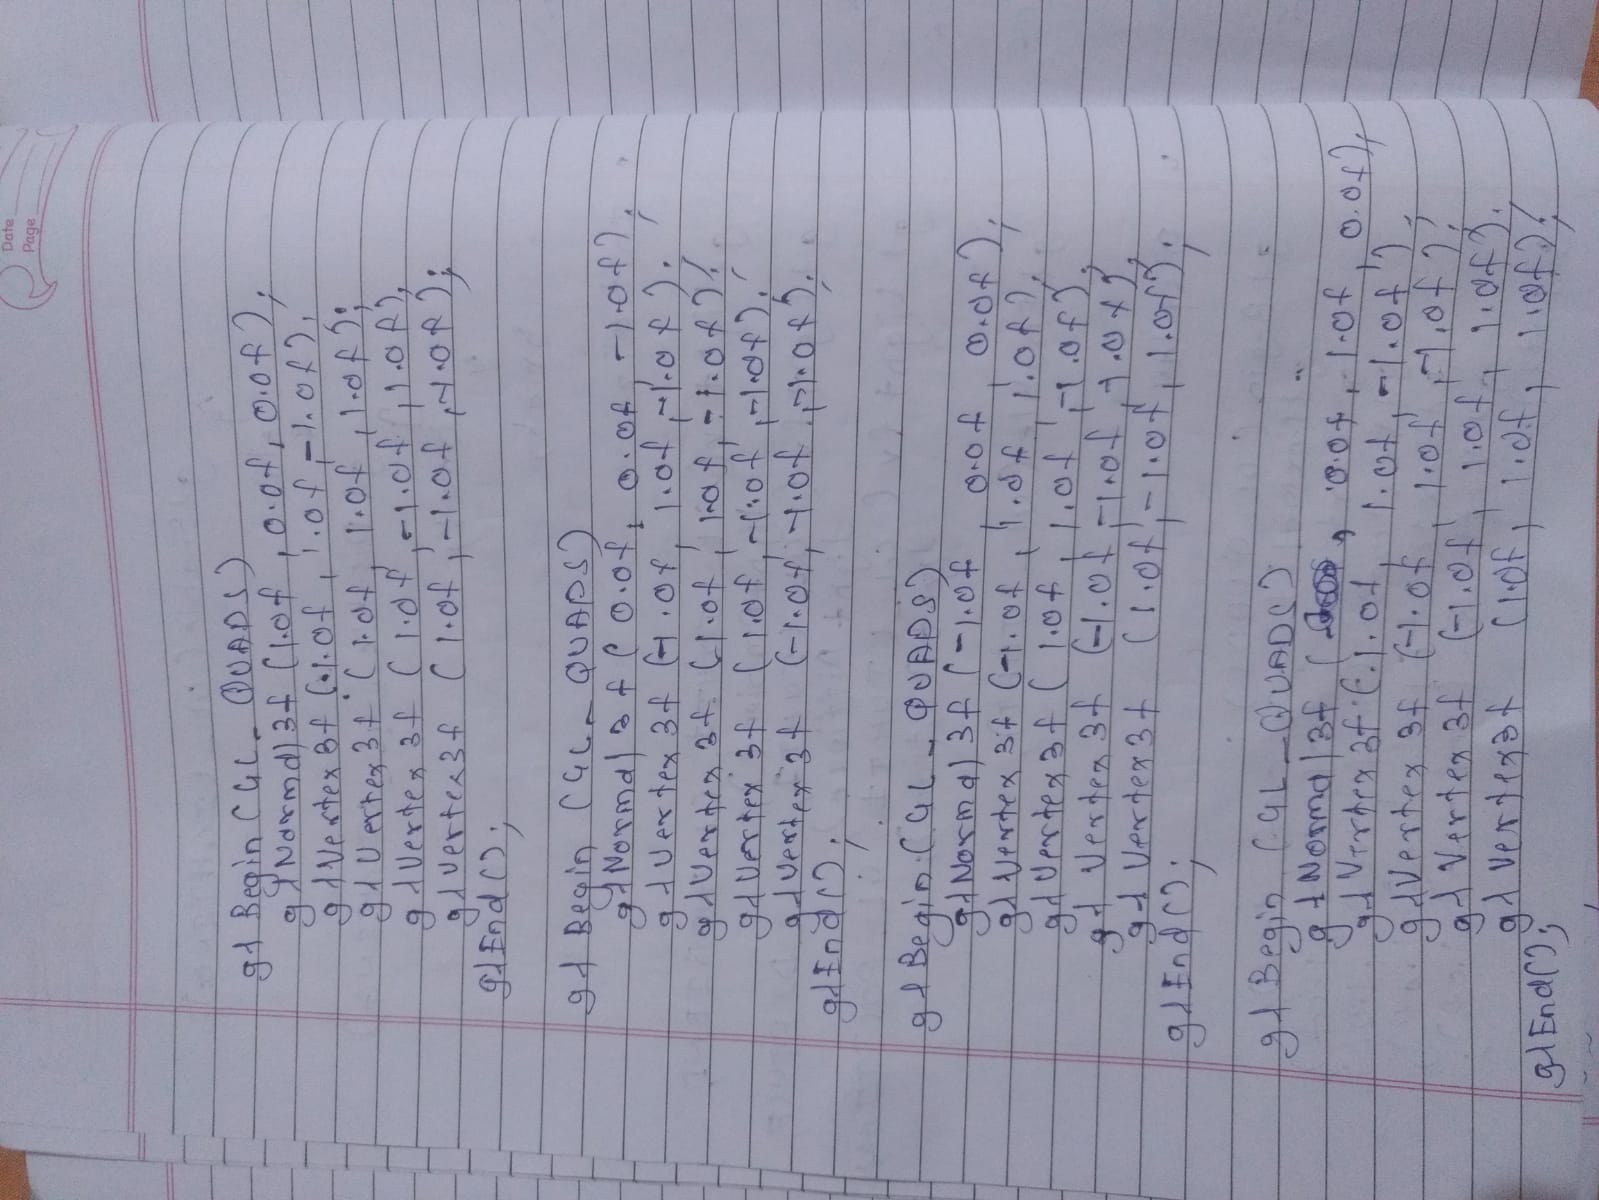 Date
Page
glBegin(GL_QUADS)
glNormal3f (1.0f, 0.0f, 0.0f);
glVertex3f (1.0f, 1.0f, -1.0f);
glVertex3f (1.0f, 1.0f, 1.0f);
glVertex3f (1.0f, -1.0f, 1.0f);
glVertex3f (1.0f, -1.0f, -1.0f);
glEnd();
glBegin (GL_QUADS)
glNormal3f (0.0f, 0.0f, -1.0f);
glVertex3f (-1.0f, 1.0f, -1.0f);
glVertex3f (1.0f, 1.0f, -1.0f);
glVertex3f (1.0f, -1.0f, -1.0f);
glVertex3f (-1.0f, -1.0f, -1.0f);
glEnd();
glBegin(GL_QUADS)
glNormal3f (-1.0f, 0.0f, 0.0f);
glVertex3f (-1.0f, 1.0f, 1.0f);
glVertex3f (1.0f, 1.0f, -1.0f);
glVertex3f (-1.0f, -1.0f, -1.0f);
glVertex3f (1.0f, -1.0f, 1.0f);
glEnd();
glBegin (GL_QUADS)
glNormal3f ( , 0.0f, 1.0f, 0.0f);
glVertex3f (1.0f, 1.0f, -1.0f);
glVertex3f (-1.0f, 1.0f, -1.0f);
glVertex3f (-1.0f, 1.0f, 1.0f);
glVertex3f (1.0f, 1.0f, 1.0f);
glEnd();